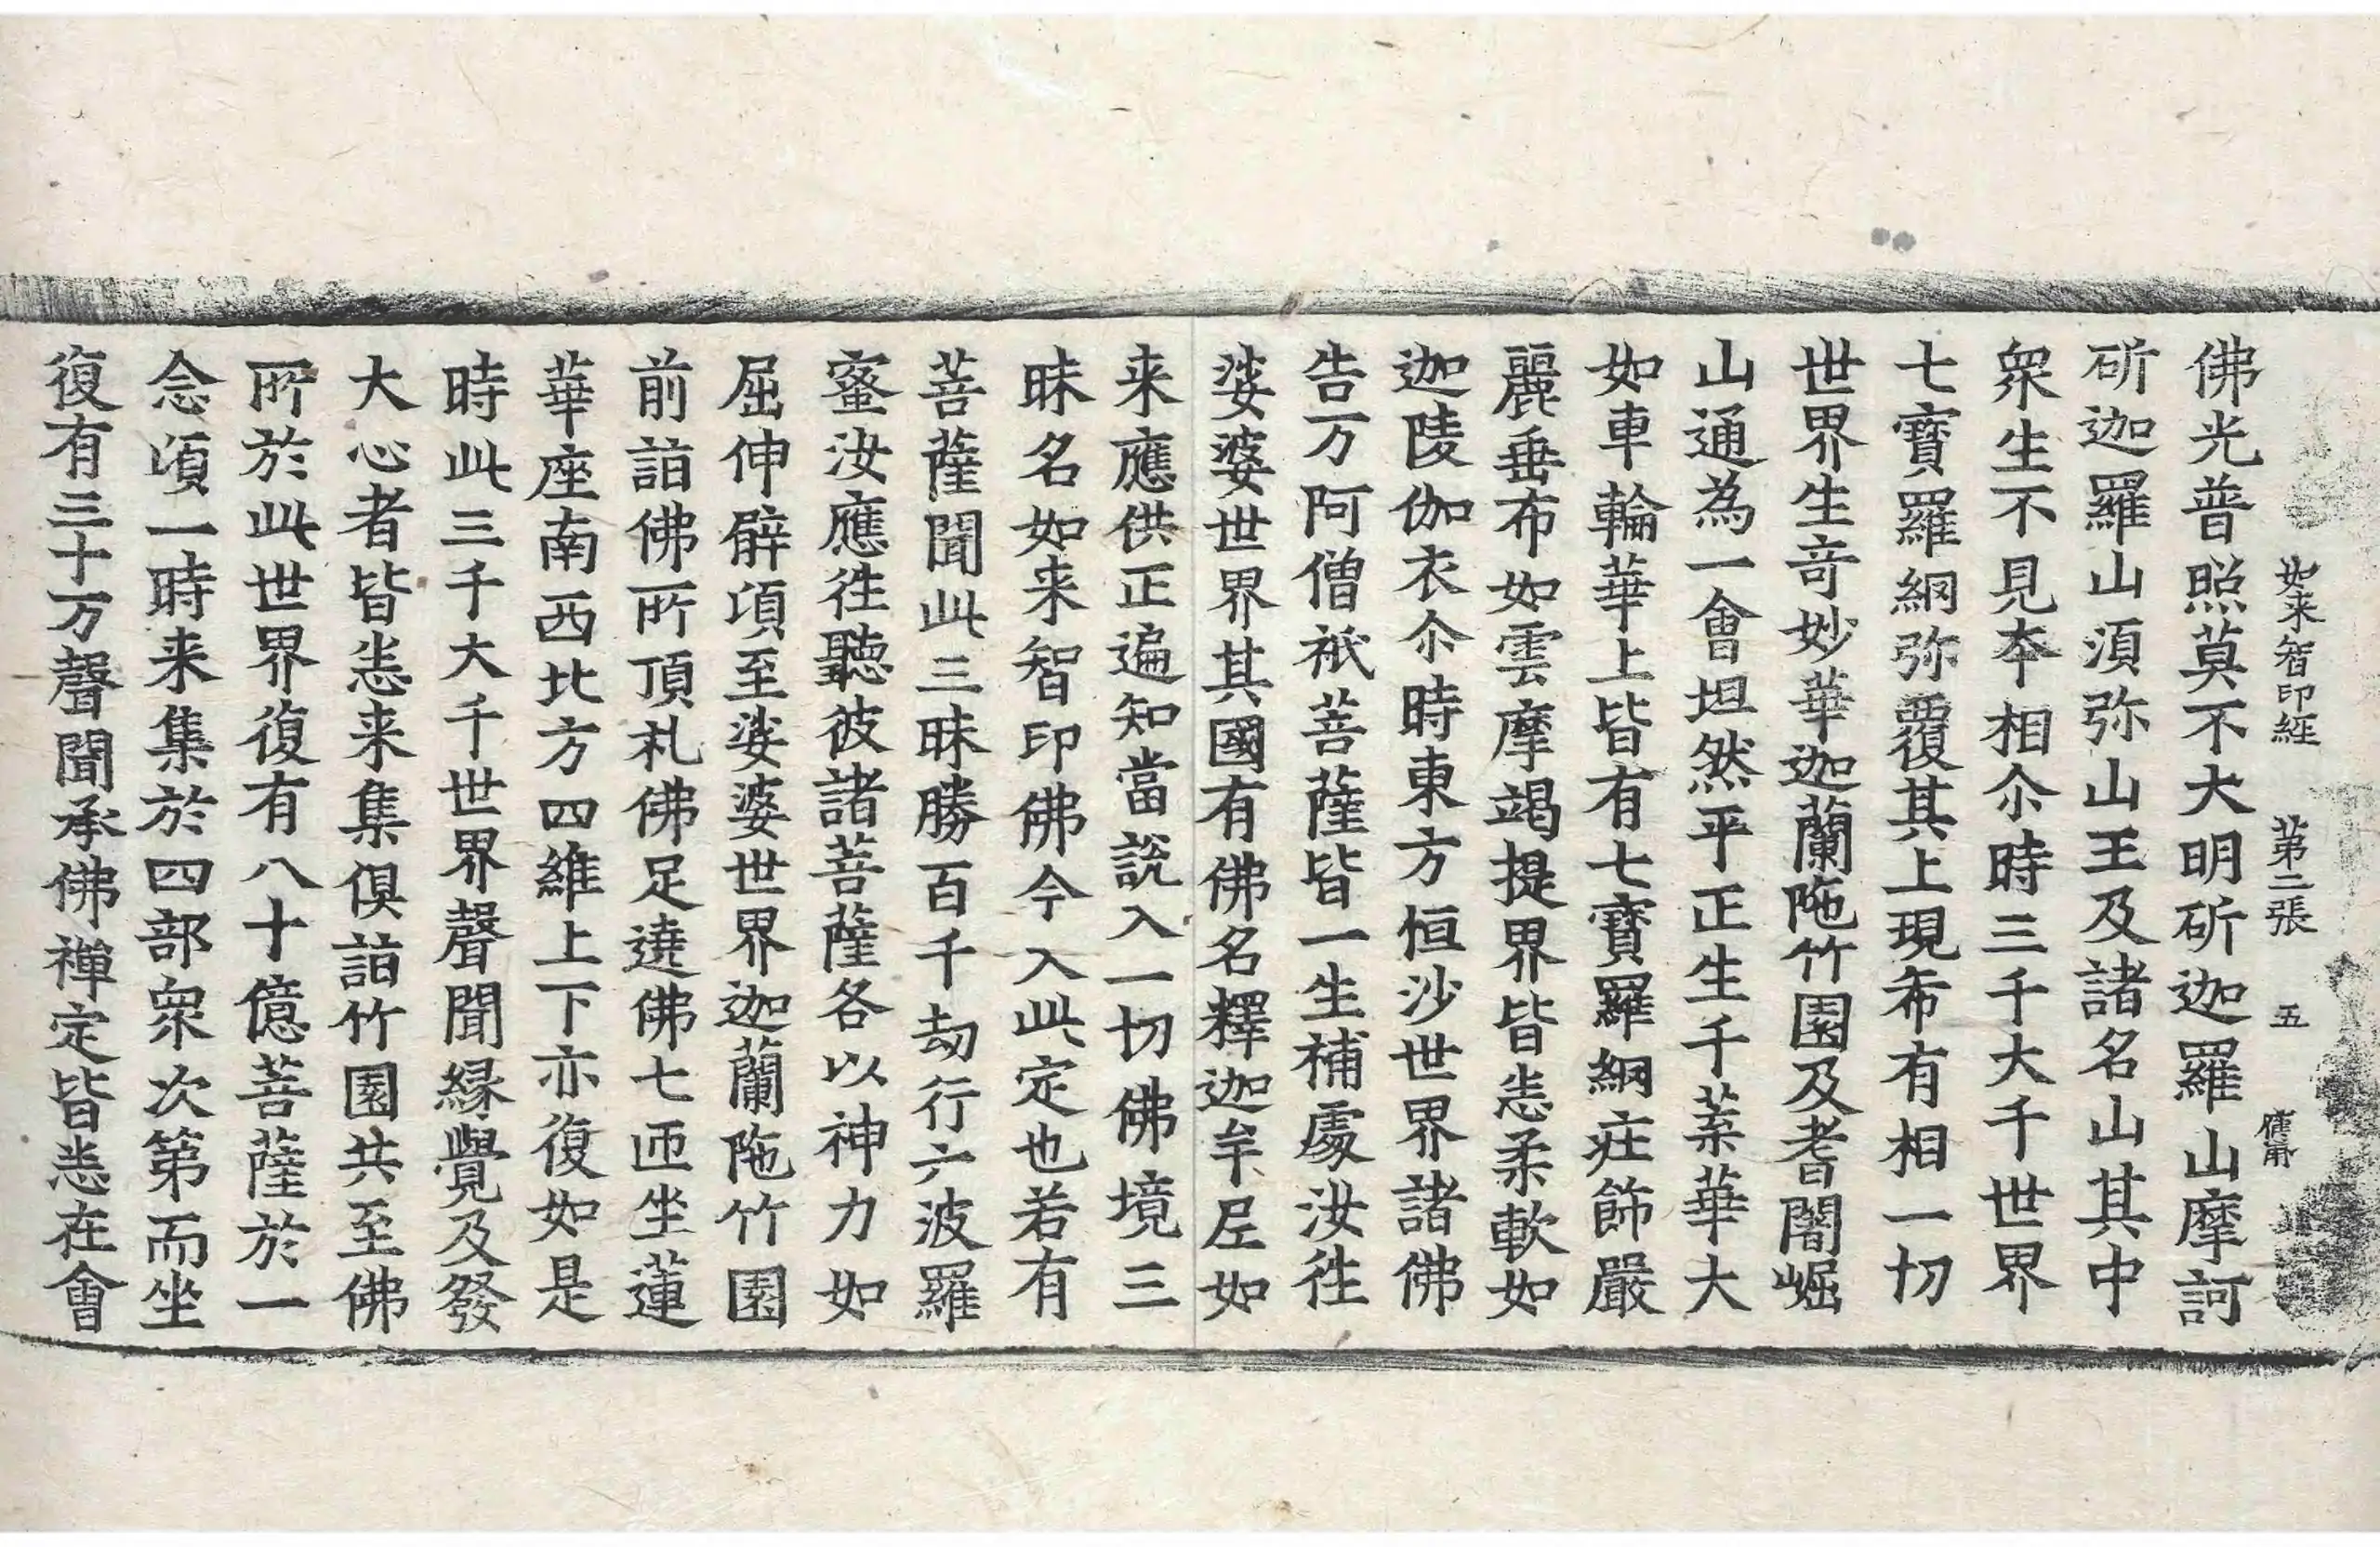 如来智印經 第二張 五
佛光普照莫不大明斫迦羅山摩訶
斫迦羅山湏弥山王及諸名山其中
衆生不見夲相尒時三千大千世界
七寶羅網弥覆其上現希有相一切
世界生竒妙華迦蘭陁竹園及耆闍崛
山通為一會坦然平正生千葉華大
如車輪華上皆有七寶羅網莊飾嚴
麗垂布如雲摩竭提界皆悉柔軟如
迦陵伽衣尒時東方恒沙世界諸佛
告万阿僧祇菩薩皆一生補處汝往
娑婆世界其國有佛名釋迦牟尼如
来應供正遍知當説入一切佛境三
昧名如来智印佛今入此定也若有
菩薩聞此三昧勝百千劫行六波羅
蜜汝應往聽彼諸菩薩各以神力如
屈伸臂項至娑婆世界迦蘭陁竹園
前詣佛所頂礼佛足遶佛七匝坐蓮
華座南西北方四維上下亦復如是
時此三千大千世界聲聞縁覺及發
大心者皆悉来集俱詣竹園共至佛
所於此世界復有八十億菩薩於一
念湏一時来集於四部衆次第而坐
復有三十万聲聞承佛禅定皆悉在會